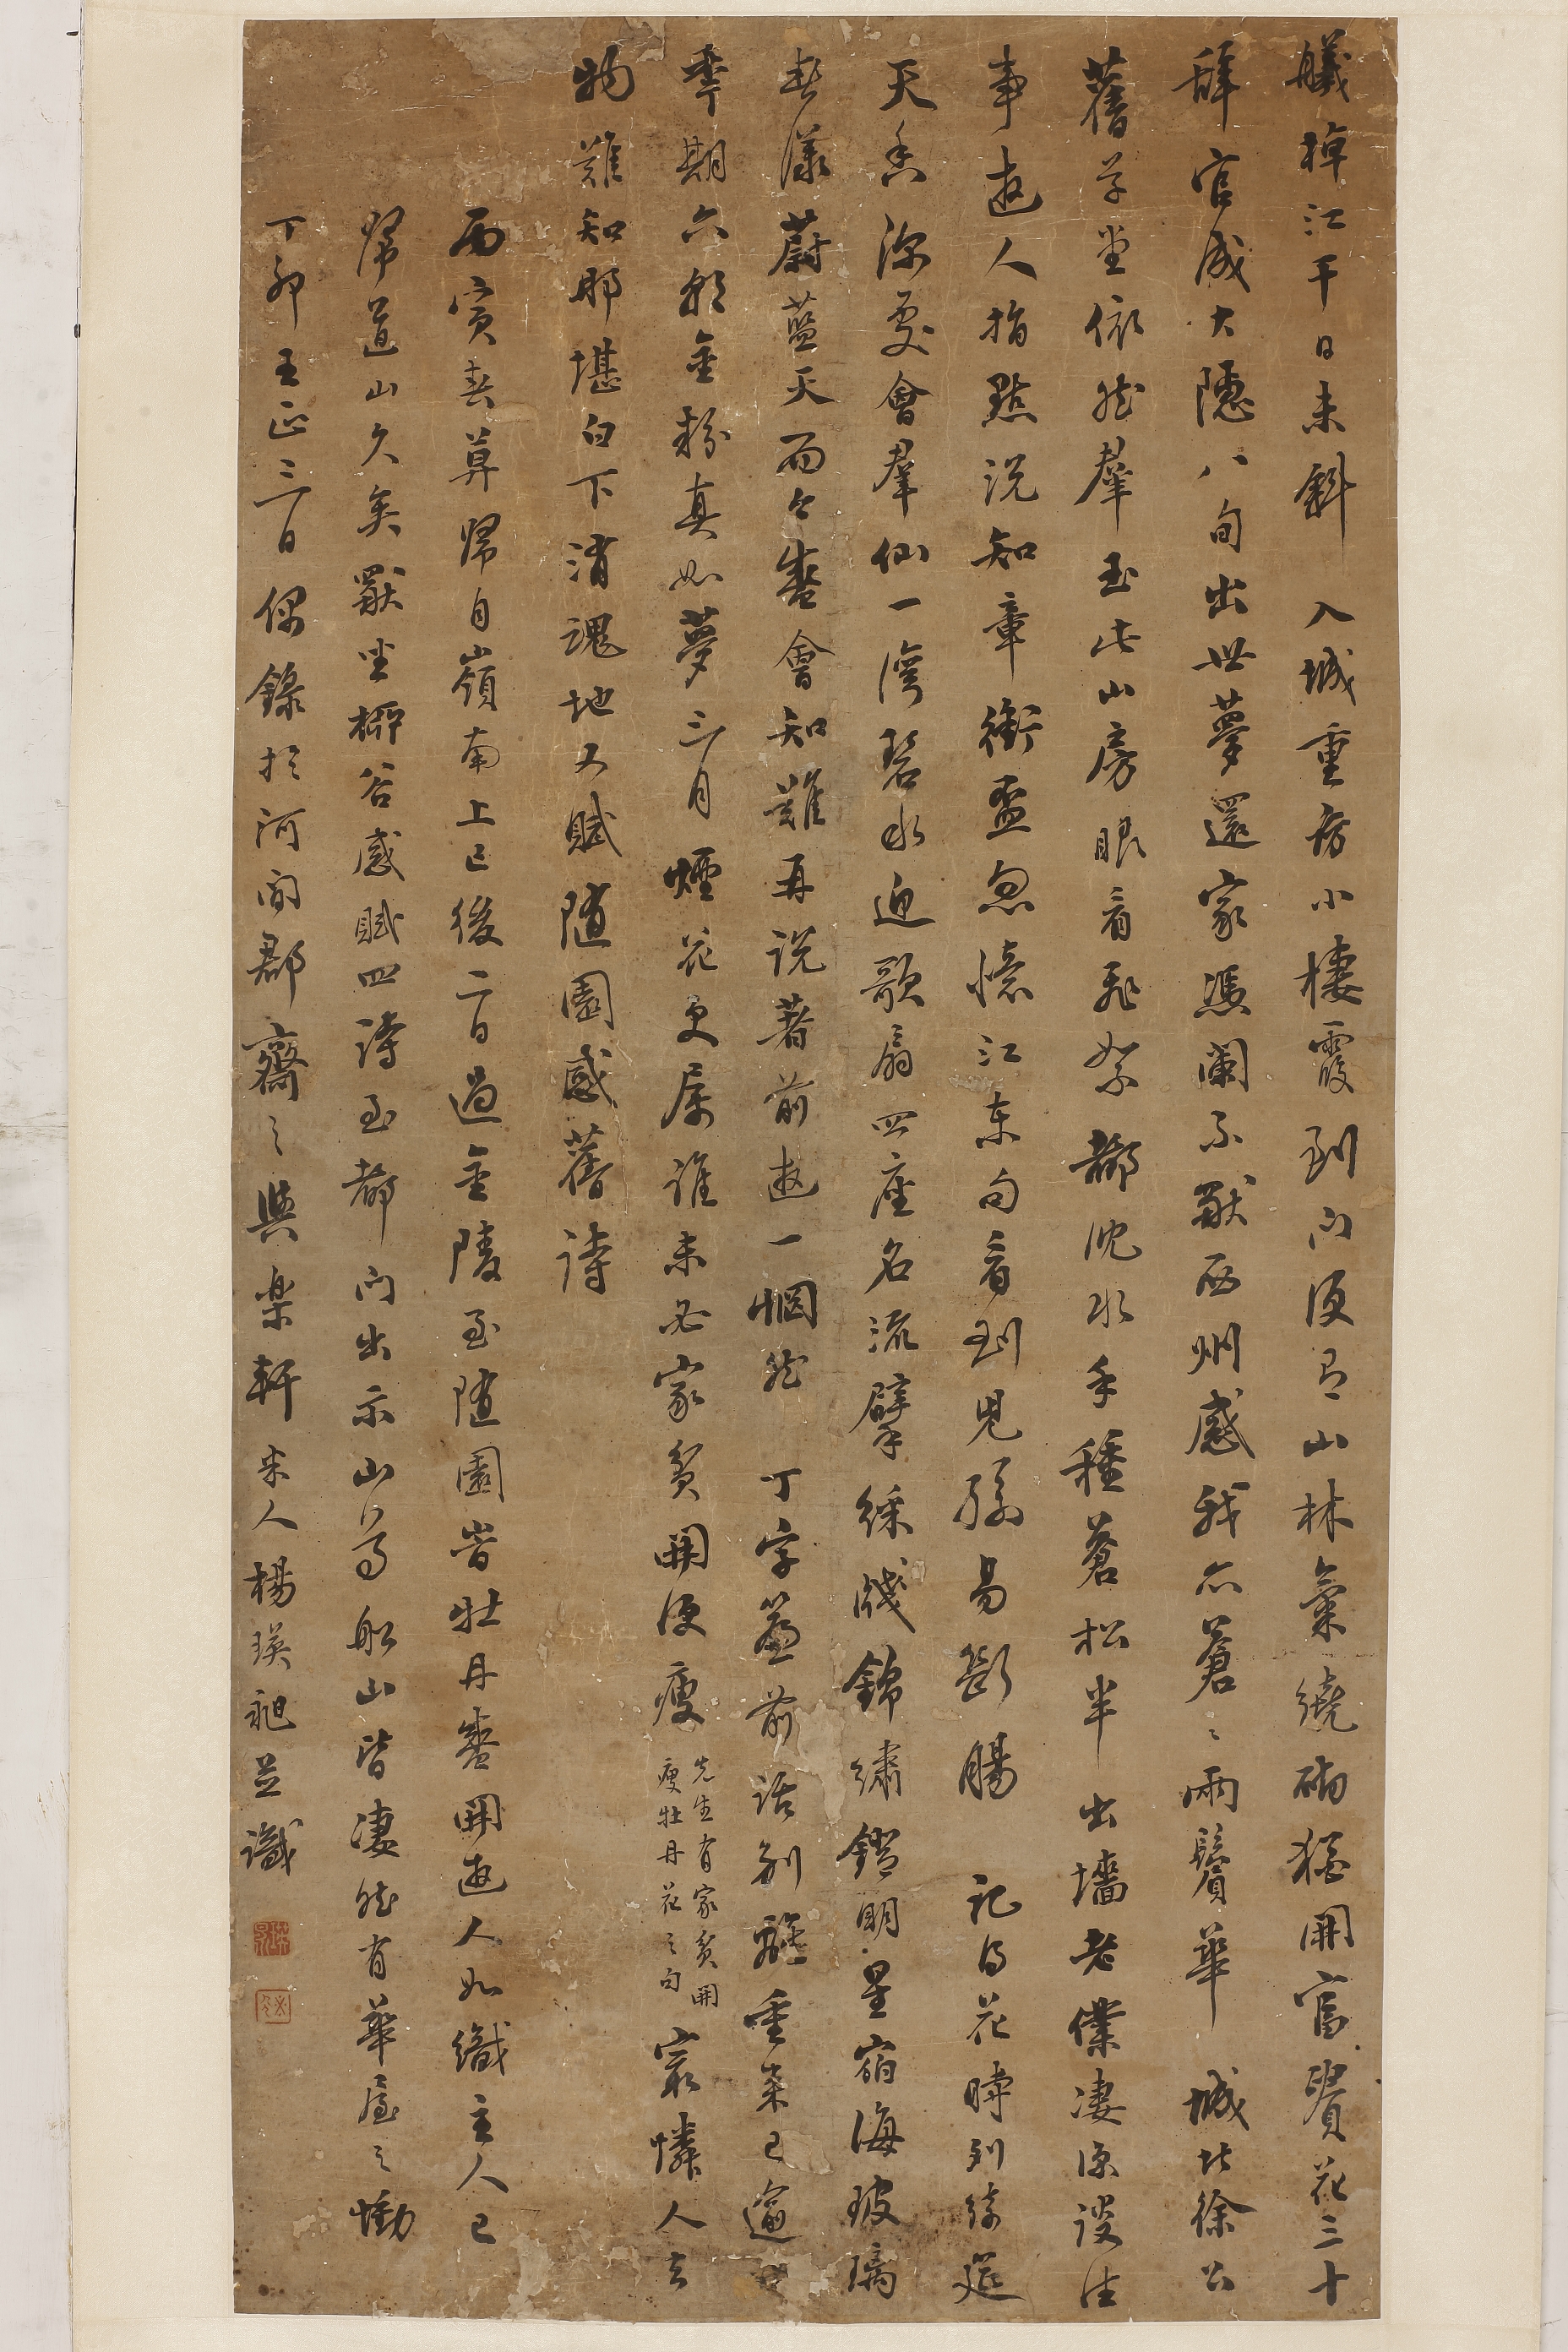 艤棹江干日未斜入城重訪小棲霞到門便有山林氣繞砌猶開富貴花三十
辭官成大隱八旬出世夢還家憑闌不厭西州感我亦蒼〻兩鬢華城北徐公
舊草堂依然羣玉此山房眼看飛絮都沈水手種蒼松半出墻老僕凄涼談往
事遊人指點説知章銜盃忽憶江東句看到兒孫易斷腸記得花時列綺筵
天香深處會羣仙一灣碧水迎歌扇四座名流擘綵牋錦繡鐙明星宿海玻璃
春漾蔚藍天而今盛會知難再説著前遊一惘然丁字簾前話别離重來已逾
季期六朝金粉真如夢三月煙花更屬誰未必家貧開便瘦先生有家貧開瘦牡丹花之句最憐人去
物難知那堪白下消魂地又賦隨園感舊詩
丙寅春莫歸自嶺南上巳後二日過金陵至隨園昔牡丹盛開遊人如織主人已
歸道山久矣獸坐柳谷感賦四詩至都門出示山尊船山皆凄然有華屋之慟
丁卯王正三日偶錄於河間郡齋之與樂軒米人楊瑛昶並識